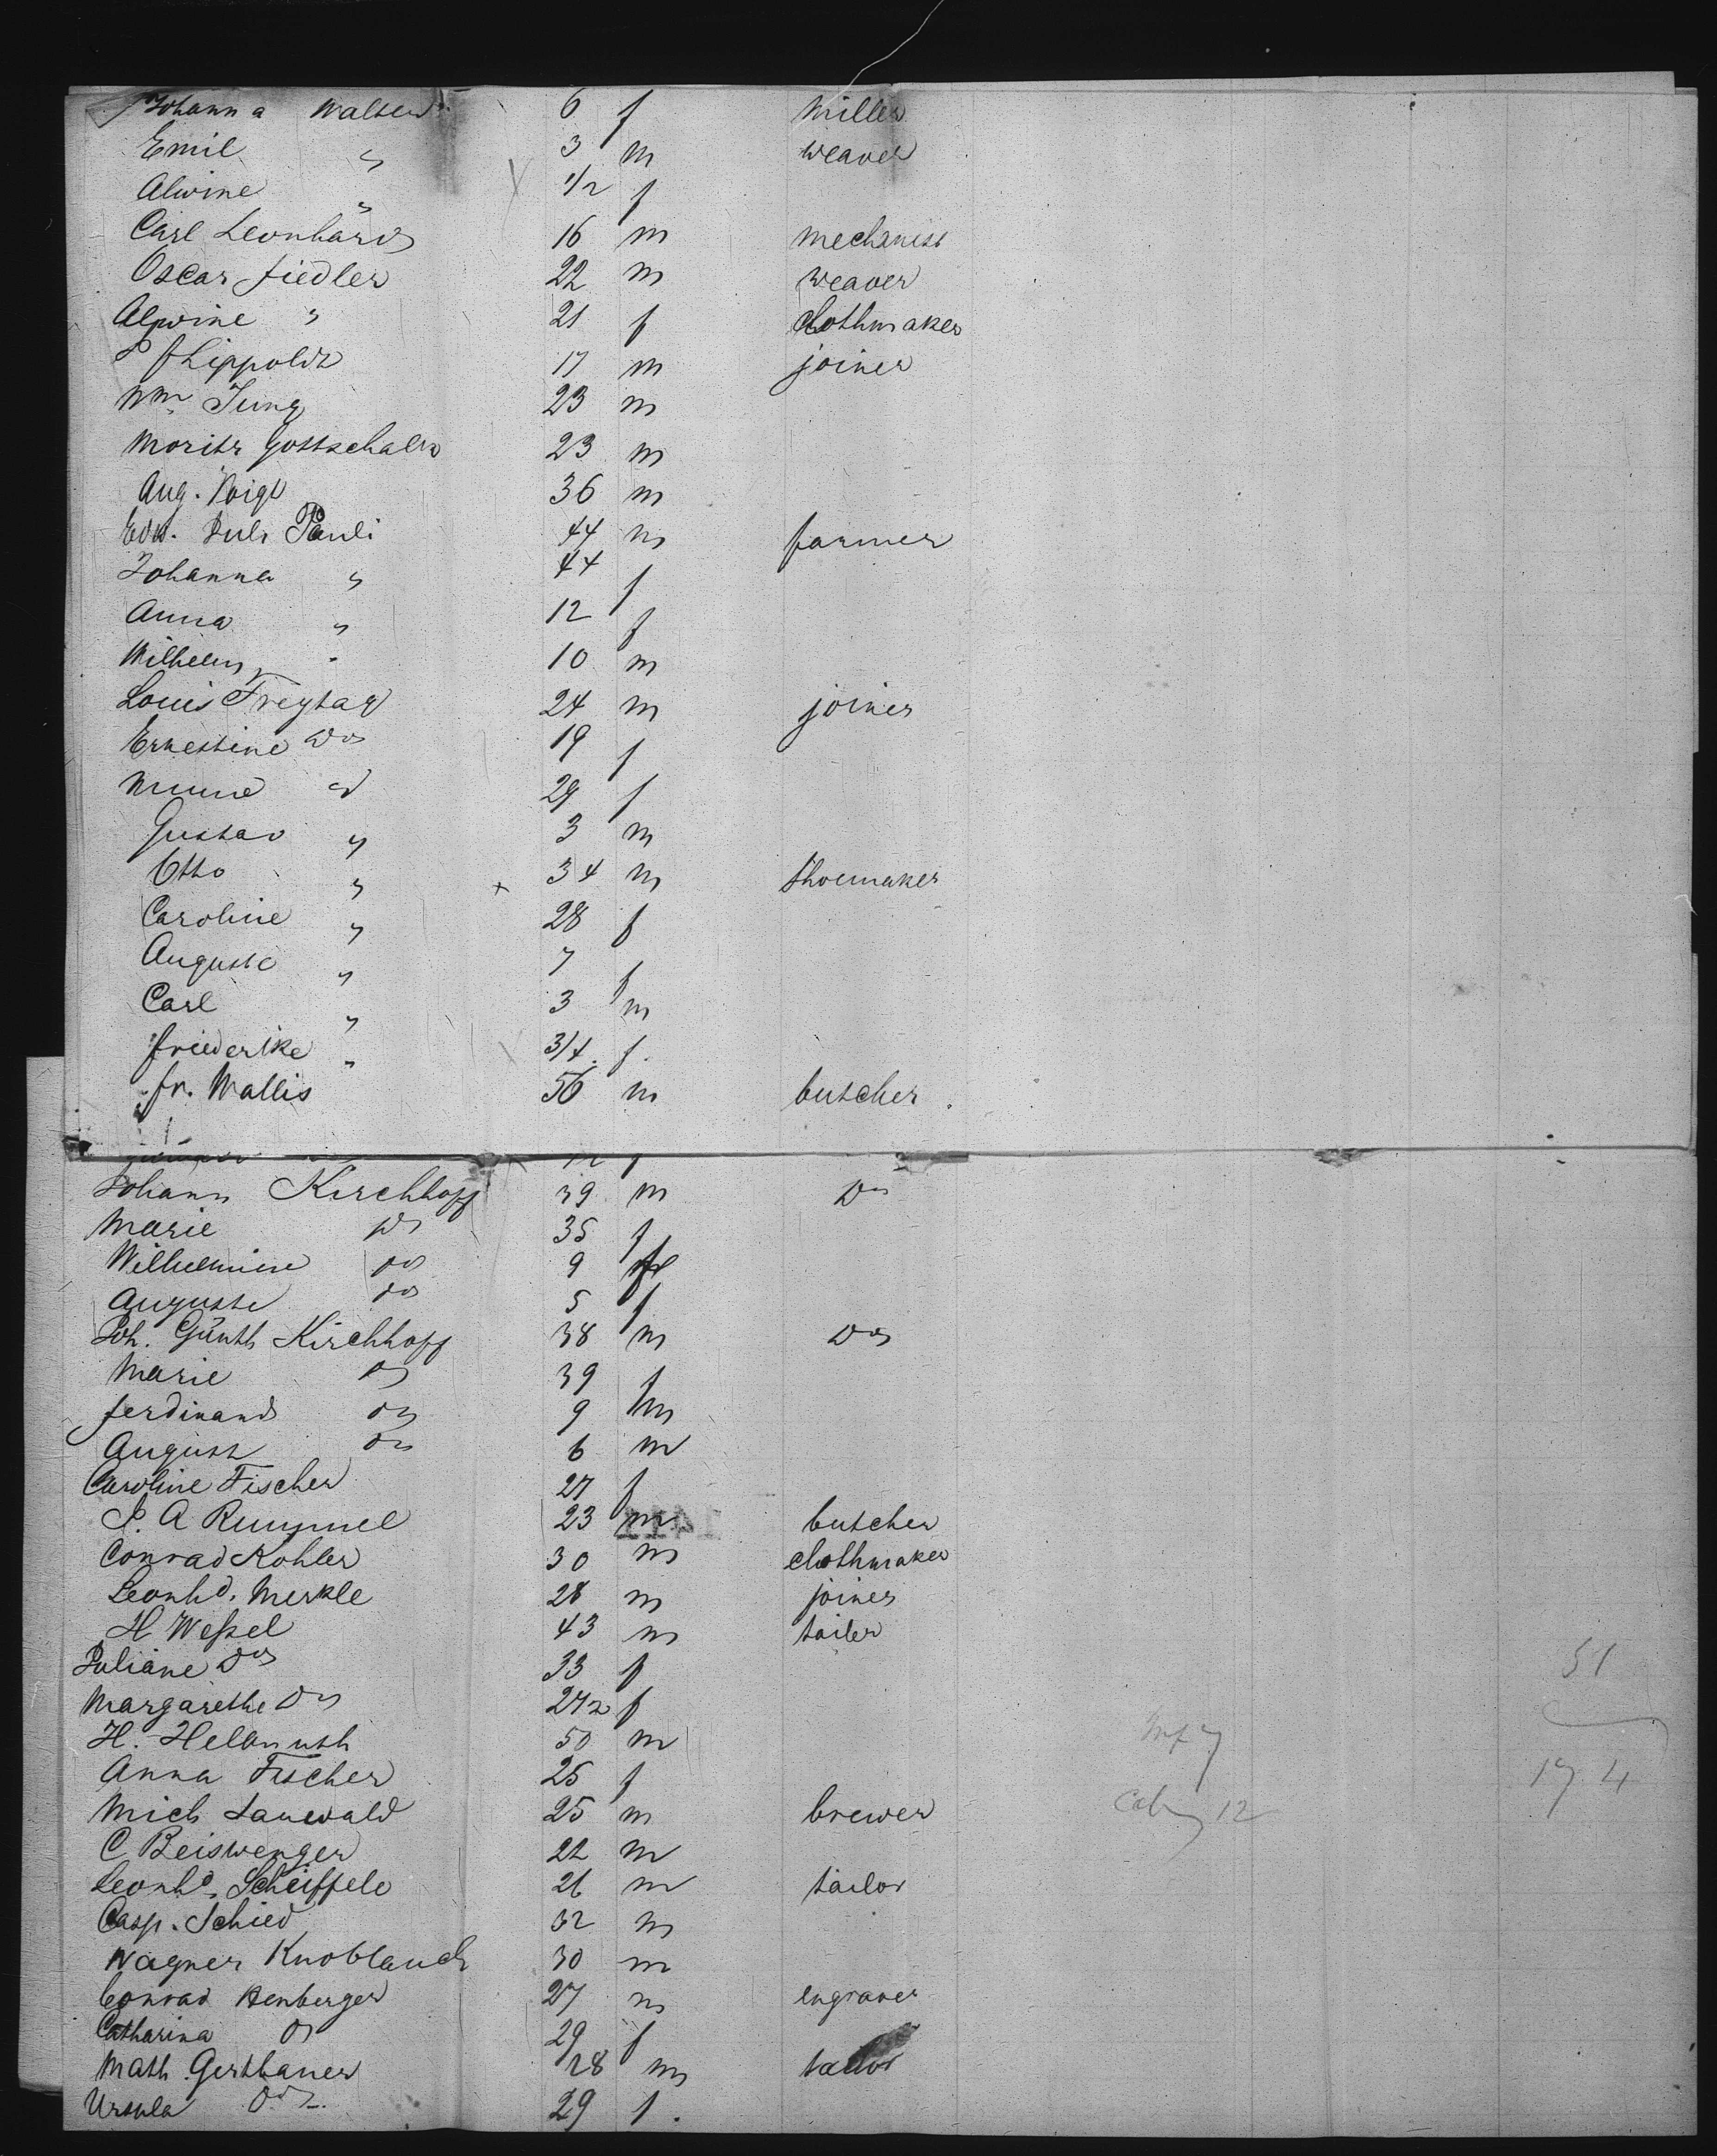 Johanna Walter 6 f miller
Emil " 3 m weaver
Alwine " 1/2 f
Carl Leonhard 16 m mechanist
Oscar Fiedler 22 m weaver
Alwine " 21 f clothmaker
F Lippoldt 17 m joiner
Wm Jung 23 m
Moritz Gottschalk 23 m
Aug. Voigt 36 m
Edw. Juls Pauli 44 m farmer
Johanna " 44 f
Anna " 12 f
Wilhelm " 10 m
Louis Freytag 24 m joiner
Ernestine Do 19 f
Minna d 29 f
Gustav " 3 m
Otto " 34 m shoemaker
Caroline " 28 f
Auguste " 7 f
Carl " 3 m
Friederike " 3/4 f.
Fr. Wallis 56 m butcher
Johann Kirchhoff 39 m Do
Marie Do 35 f
Wilhelmine do 9 f
Auguste do 5 f
Joh. Günth Kirchhoff 38 m Do
Marie do 39 f
Ferdinand do 9 m
August do 6 m
Caroline Fischer 27 f
J. A Rummel 23 m butcher
Conrad Kohler 30 m clothmaker
Leonhd. Merkle 28 m joiner
H Weßel 43 m tailer
Juliane Do 33 f
Margarethe Do f
H. Helmuth 50 m
Anna Fischer 25 f
Mich Lauwald 25 m brewer
C Beiswenger 22 m
Leonhd. Scheiffele 26 m tailor
Casp. Schied 32 m
Wagner Knoblauch 30 m
Conrad Benberger 27 m engraver
Catharina do 29 f
Math. Gerstbauer 28 m tailor
Ursula Do 29 f.
51
17.4
12